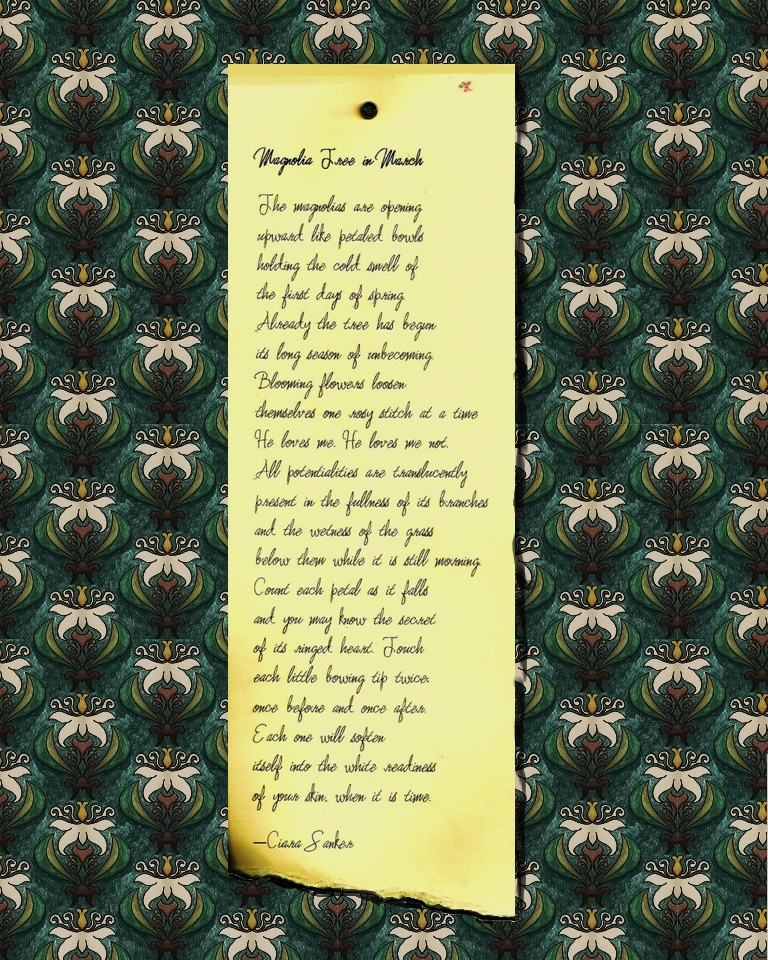 Magnolia Tree in March
The magnolias are opening
upward like petaled bowls
holding the cold smell of
the first days of spring.
Already the tree has begun
its long season of unbecoming.
Blooming flowers loosen
themselves one rosy stitch at a time
He loves me. He loves me not.
All potentialities are translucently
present in the fullness of its branches
and the wetness of the grass
below them while it is still morning.
Count each petal as it falls
and you may know the secret
of its ringed heart. Touch
each little bowing tip twice:
once before and once after.
Each one will soften
itself into the white readiness
of your skin, when it is time.
—Ciara Sanker